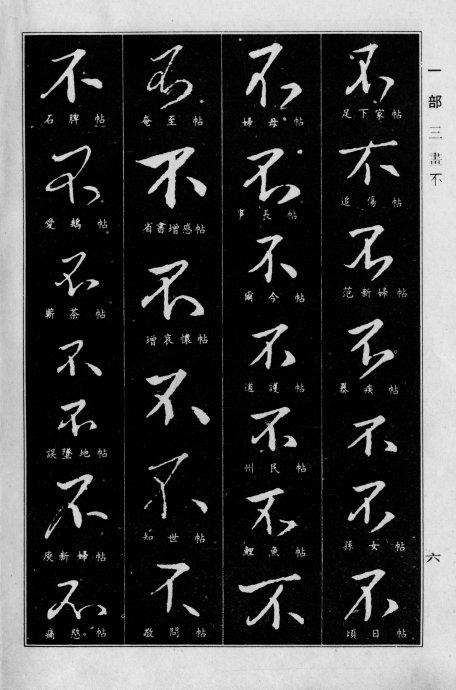 一部 三畫 不
六
不
足下家帖
不
近傷帖
不
范新婦帖
不
暴疾帖
不
不
孫女帖
不
頃日帖
不
婦母帖
不
長帖
不
爾今帖
不
道護帖
不
州民帖
不
鯉魚帖
不
不
奄至帖
不
省書增感帖
不
增哀懷帖
不
不
知世帖
不
敬問帖
不
石脾帖
不
愛鵝帖
不
蘄茶帖
不
不
誤墮地帖
不
庾新婦帖
不
痛愍帖